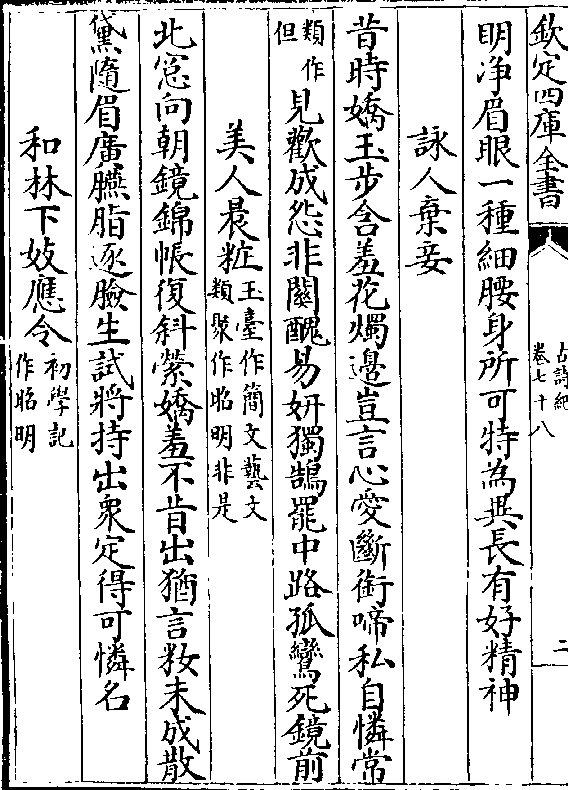 欽定四庫全書
古詩紀
卷七十八
二
明净眉眼一種細腰身所可特為異長有好精神
詠人棄妾
昔時嬌玉步含羞花燭邉豈言心愛斷銜啼私自憐常
類作
但
見歡成怨非關醜易妍獨鵠罷中路孤鸞死鏡前
美人晨粧
玉臺作簡文藝文
類聚作昭明非是
北窓向朝鏡錦帳復斜縈嬌羞不肯出猶言粧未成散
黛隨眉廣臙脂逐臉生試將持出衆定得可憐名
和林下妓應令
初學記
作昭明